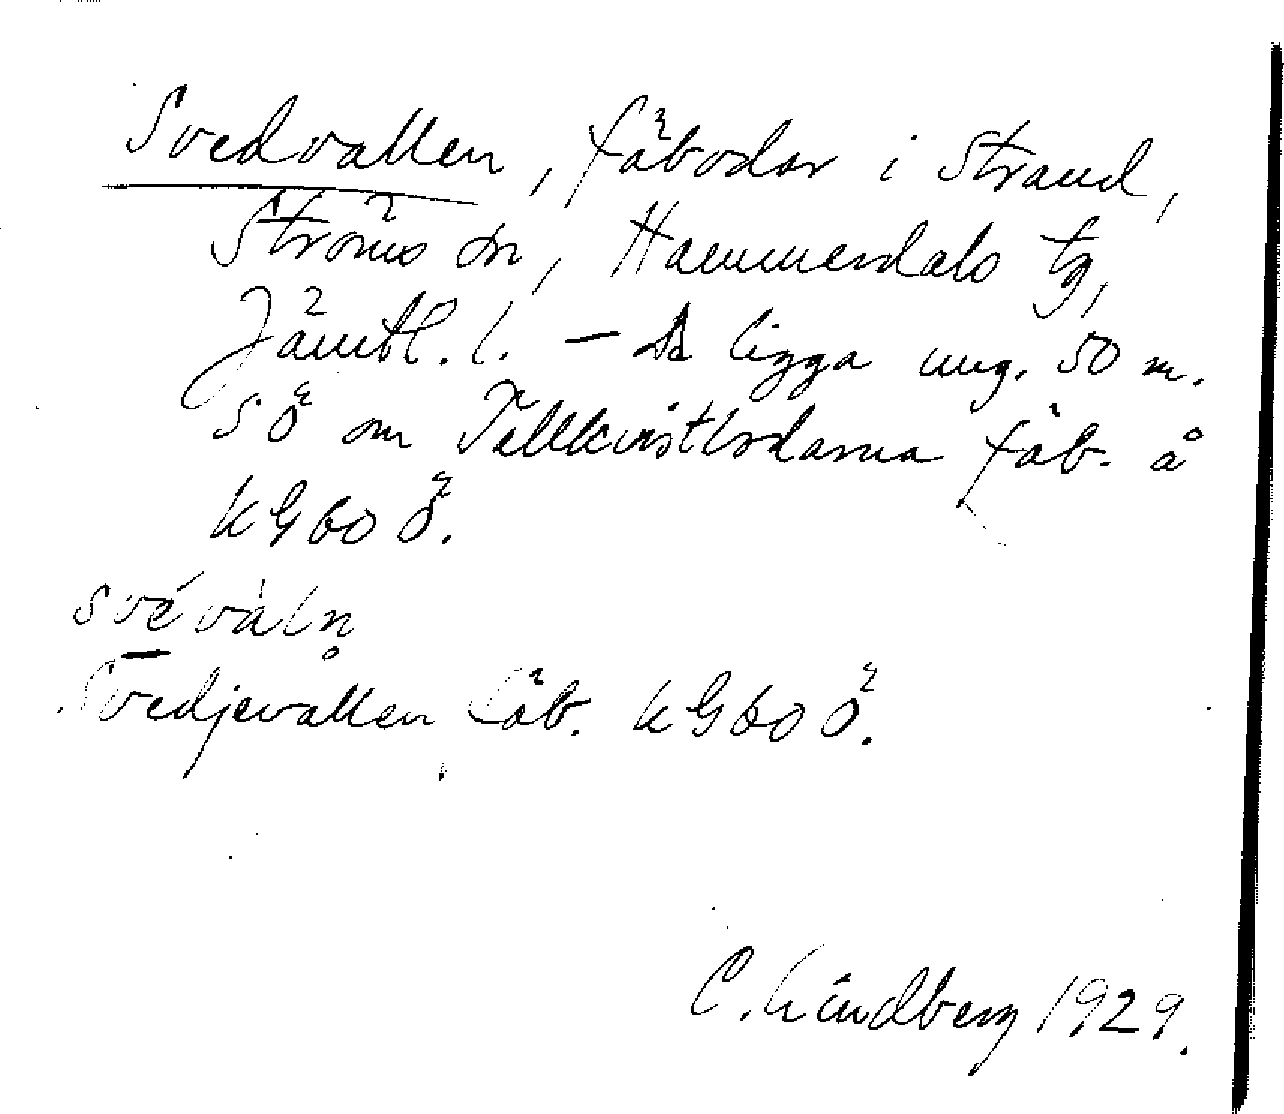 Svedvallen, fäbodar i Strand,
Ströms sn, Hammerdals tg,
Jämtl. l. – De ligga ung. 50 m.
SÖ om Tällkvistbodarna fäb. å
kG60Ö.
svévàln̥
Svedjevallen fäb. kG60Ö.
C. Lindberg 1929.